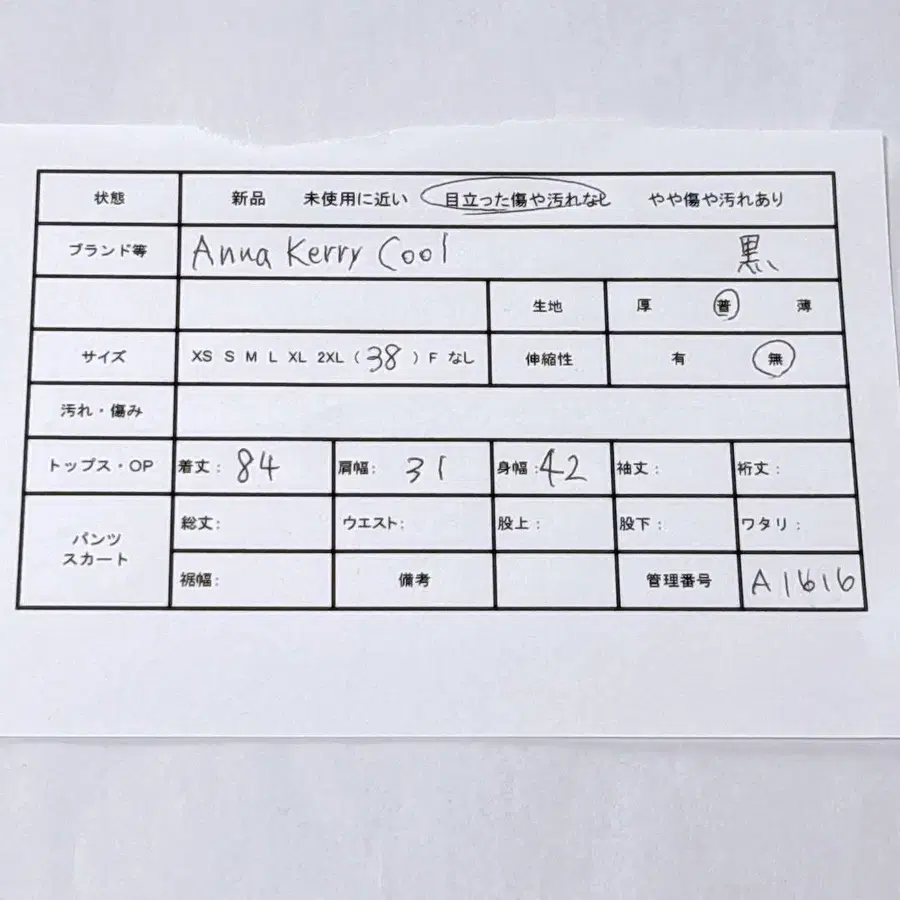 状態 新品 未使用に近い 目立った傷や汚れなし やや傷や汚れあり
ブランド等 Anna Kerry Cool 黒
生地 厚 普 薄
サイズ XS S M L XL 2XL ( 38 ) F なし 伸縮性 有 無
汚れ・傷み
トップス・OP 着丈: 84 肩幅: 31 身幅: 42 袖丈: 裄丈:
パンツ スカート 総丈: ウエスト: 股上: 股下: ワタリ:
裾幅: 備考 管理番号 A1616